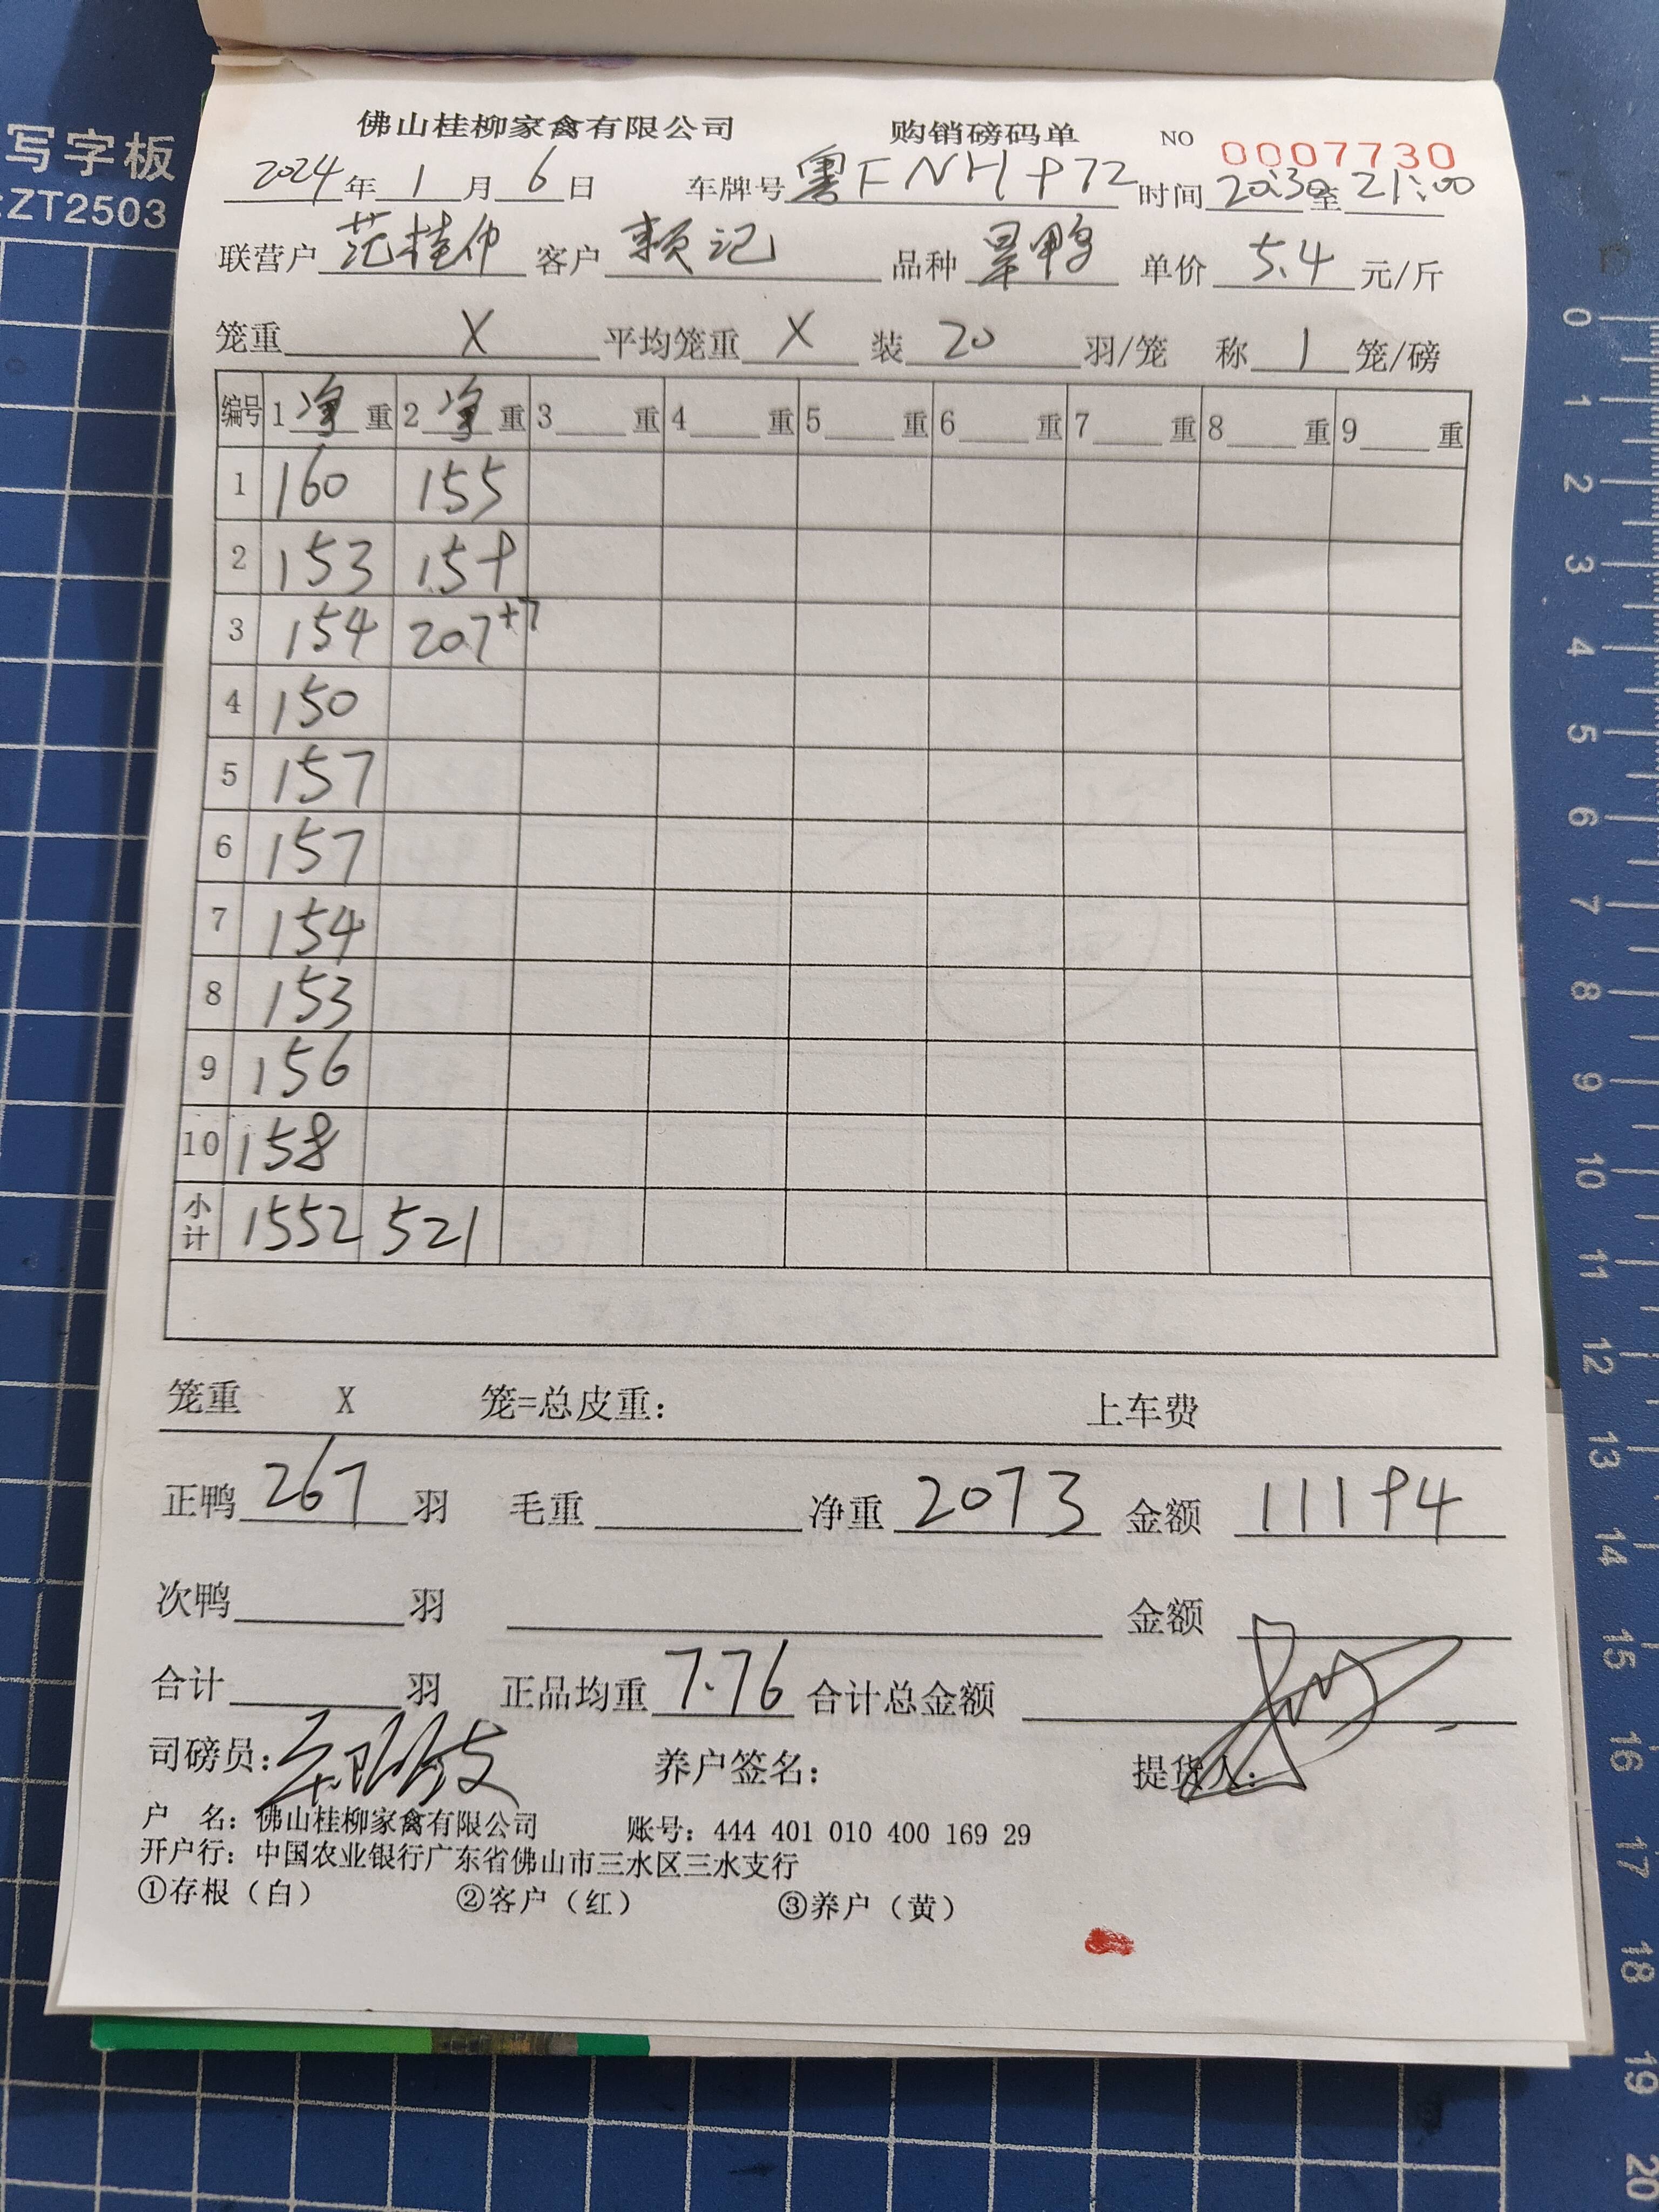 写字板
:ZT2503
佛山桂柳家禽有限公司 购销磅码单 NO 0007730
2024年 1月 6日 车牌号 粤FNH972 时间 20:30至 21:00
联营户 范桂仲 客户 赖记 品种 旱鸭 单价 5.4 元/斤
笼重 X 平均笼重 X 装 20 羽/笼 称 1 笼/磅
编号 1 净 重 2 净 重 3 重 4 重 5 重 6 重 7 重 8 重 9 重
1 160 155
2 153 159
3 154 207+7
4 150
5 157
6 157
7 154
8 153
9 156
10 158
小计 1552 521
笼重 X 笼=总皮重: 上车费
正鸭 267 羽 毛重 净重 2073 金额 11194
次鸭 羽 金额
合计 羽 正品均重 7.76 合计总金额
司磅员: 养户签名: 提货人:
户 名: 佛山桂柳家禽有限公司 账号: 444 401 010 400 169 29
开户行: 中国农业银行广东省佛山市三水区三水支行
①存根(白) ②客户(红) ③养户(黄)
0
1
2
3
4
5
6
7
8
9
10
11
12
13
14
15
16
17
18
19
20